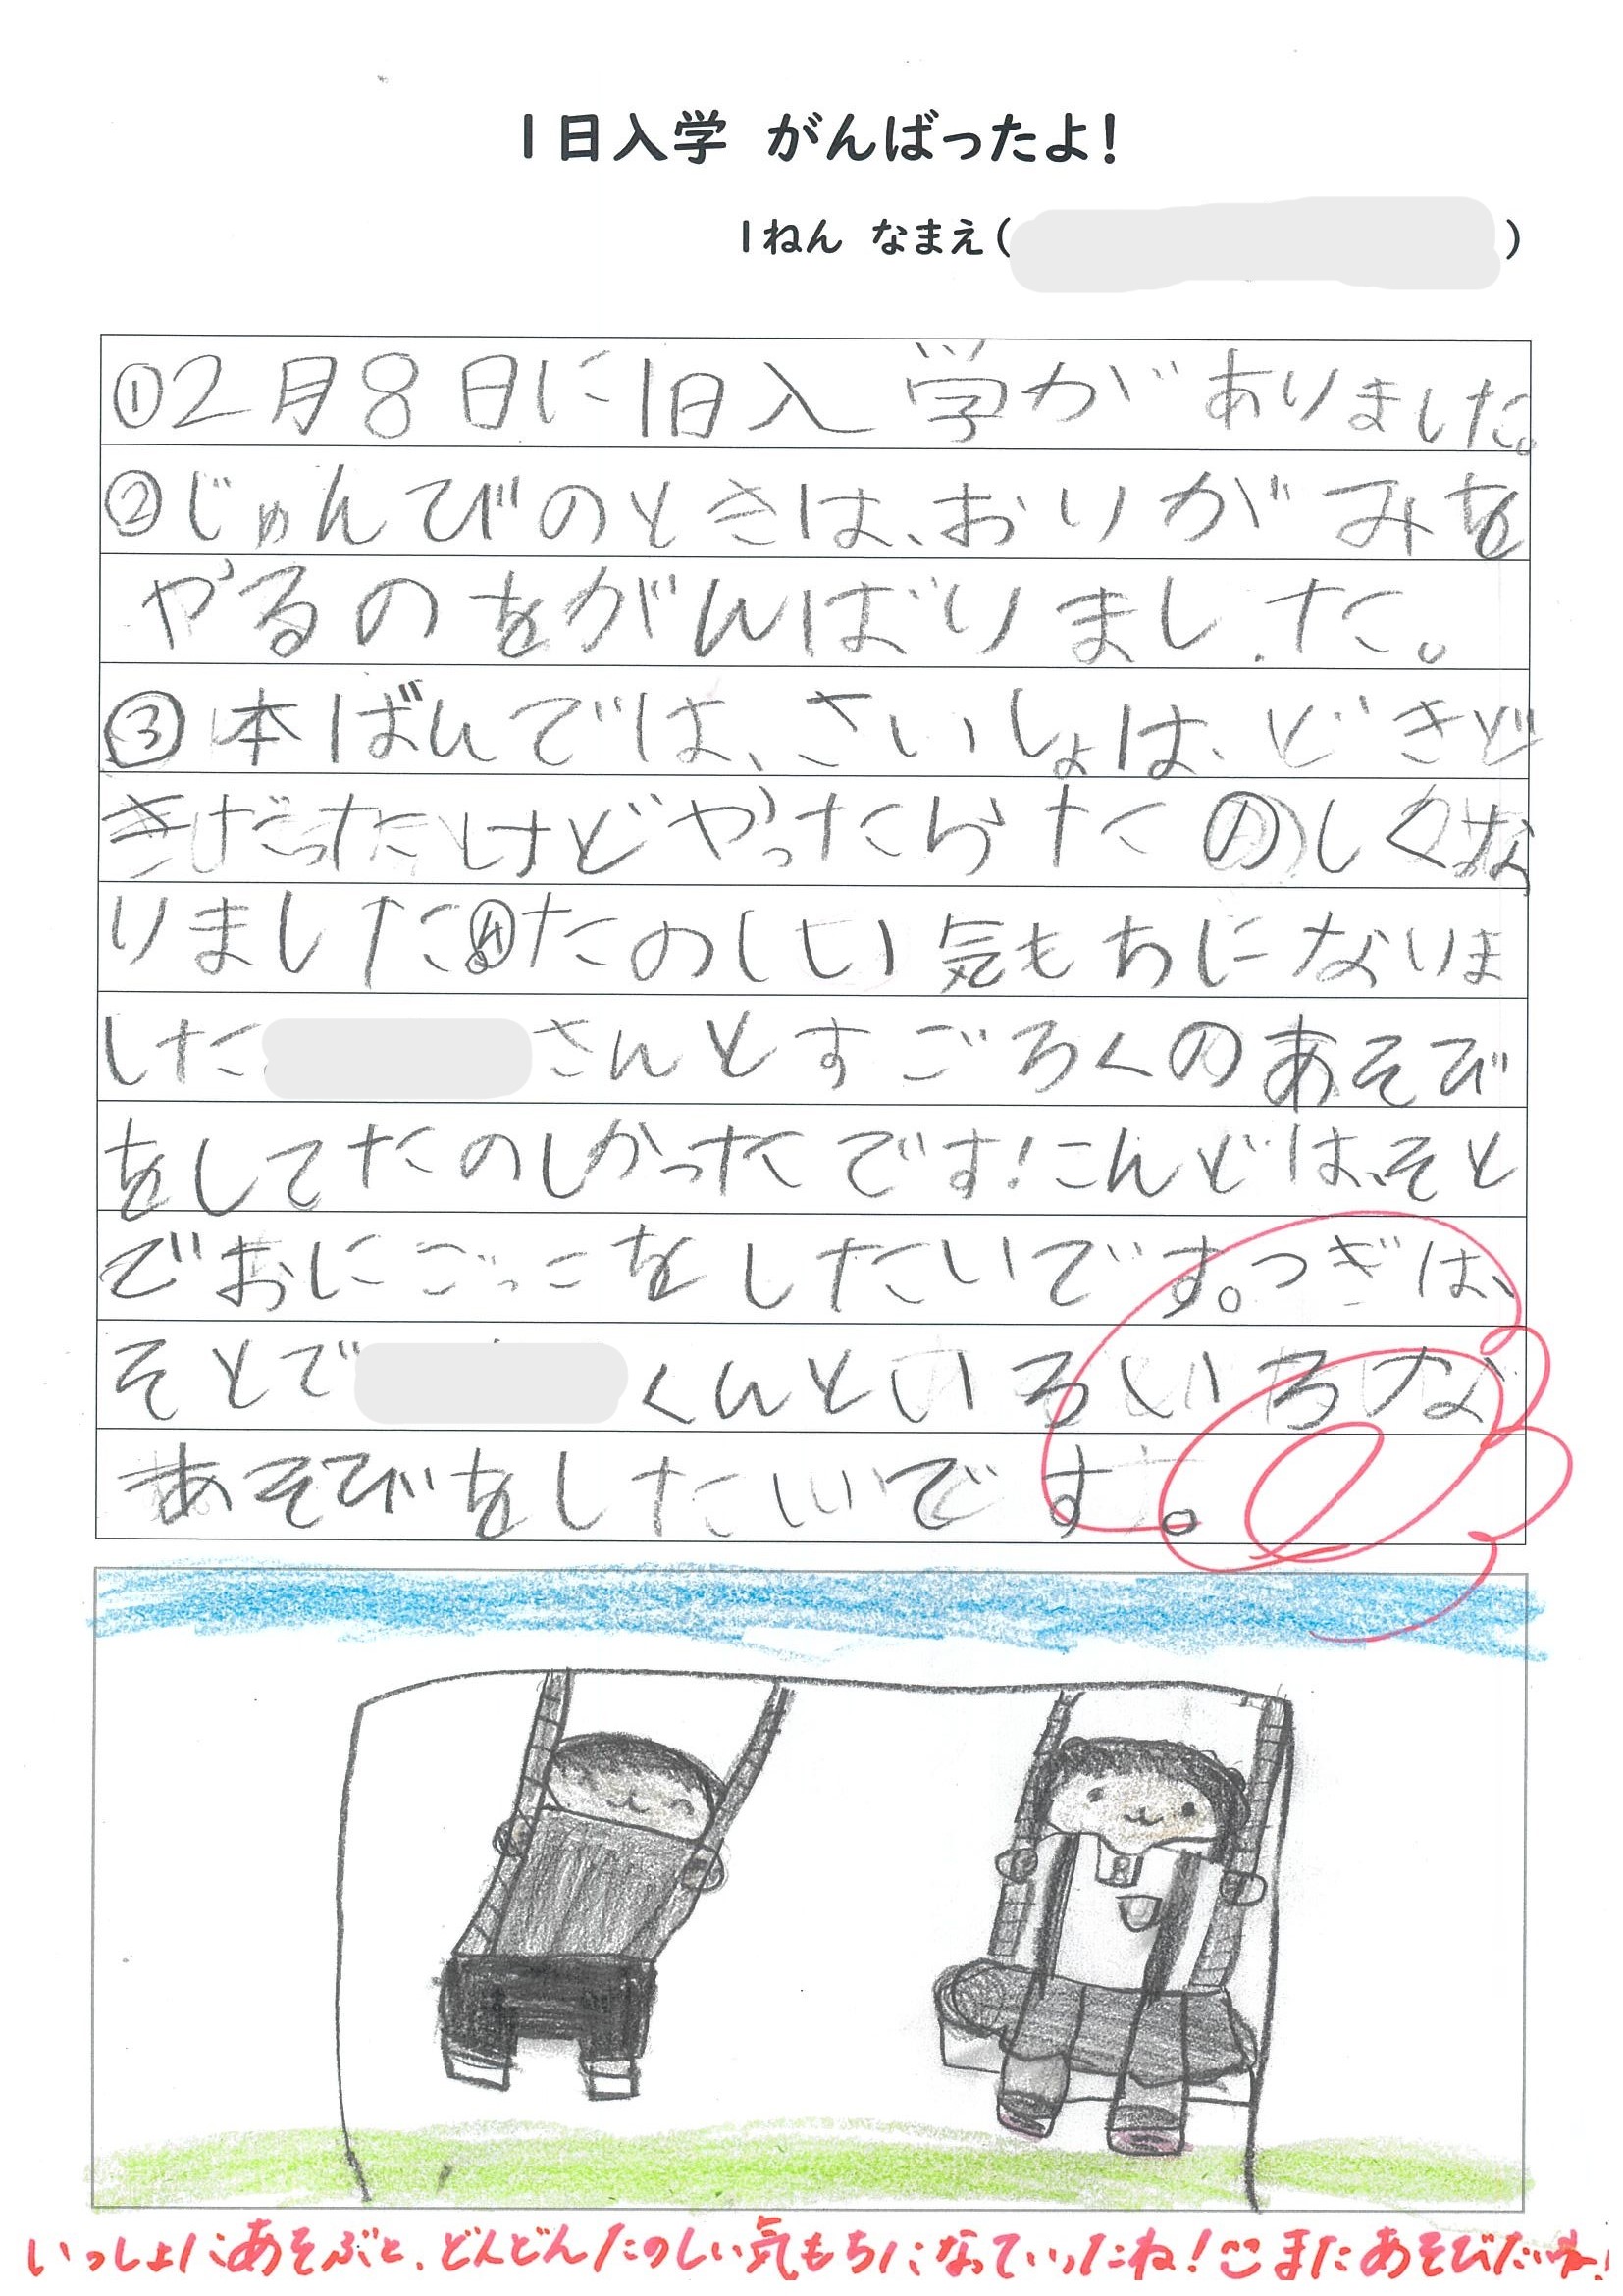 1日入学 がんばったよ!
1ねん なまえ( )
①2月8日に1日入学がありました。
②じゅんびのときは、おりがみを
やるのをがんばりました。
③本ばんでは、さいしょは、どきど
きだったけどやったらたのしくな
りました。④たのしい気もちになりま
した さんとすごろくのあそび
をしてたのしかったです!こんどは、そと
でおにごっこをしたいです。つぎは、
そとで くんといろいろな
あそびをしたいです。
いっしょにあそぶと、どんどんたのしい気もちになっていったね!またあそびたいね!